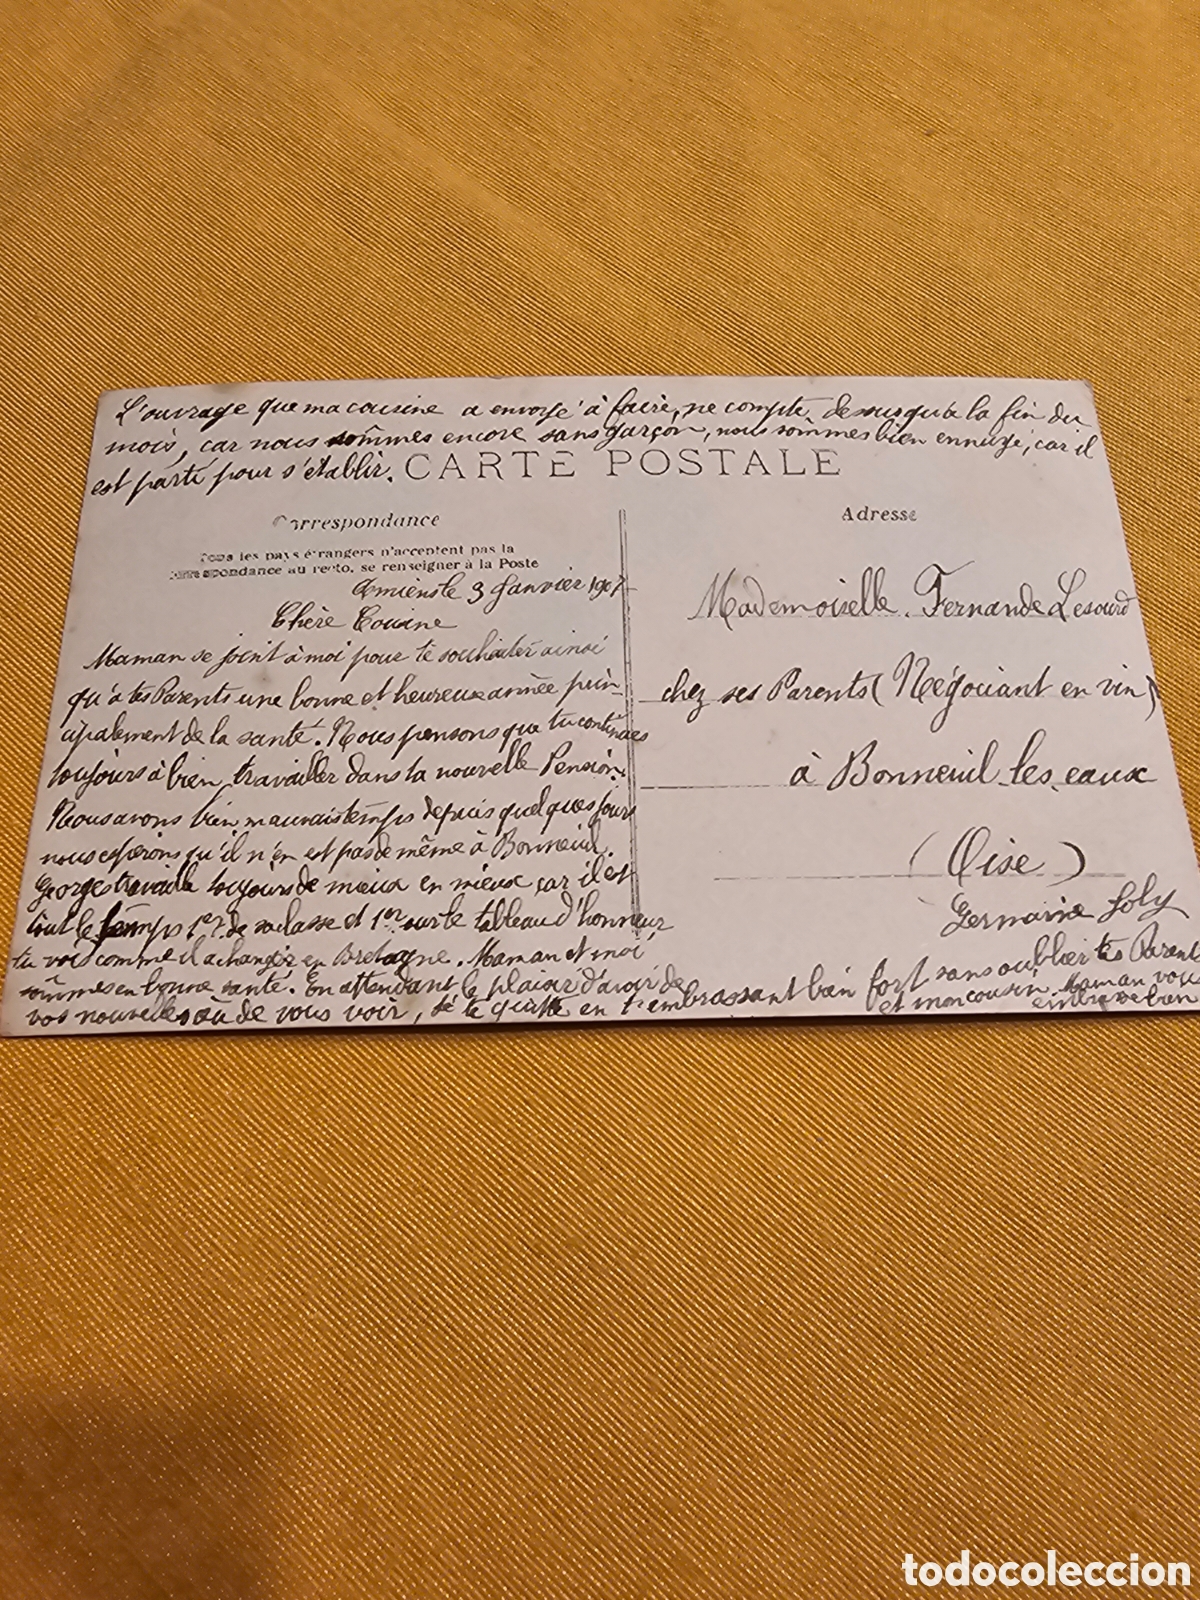 L'ouvrage que ma cousine a envoyé à faire, ne compte dessus qu'à la fin du
mois, car nous sommes encore sans garçon, nous sommes bien ennuyé, car il
est parti pour s'établir.
CARTE POSTALE
Correspondance
Tous les pays étrangers n'acceptent pas la
correspondance au recto, se renseigner à la Poste
Amiens le 3 Janvier 1907
Chère Cousine
Maman se joint à moi pour te souhaiter ainsi
qu'à tes Parents une bonne et heureuse année prin-
cipalement de la santé. Nous pensons que tu continues
toujours à bien travailler dans ta nouvelle Pension.
Nous avons bien mauvais temps depuis quelques jours
nous espérons qu'il n'en est pas de même à Bonneuil.
Georges travaille toujours de mieux en mieux car il est
tout le temps 1er de sa classe et 1er sur le tableau d'honneur
tu vois comme il a changé en Bretagne. Maman et moi
sommes en bonne santé. En attendant le plaisir d'avoir de
vos nouvelles ou de vous voir, je te quitte en t'embrassant bien fort sans oublier tes Parents
et mon cousin. Maman vous
embrasse bien
Adresse
Mademoiselle Fernande Lesourd
chez ses Parents (Négociant en vin)
à Bonneuil les eaux
(Oise)
Germaine Joly
todocoleccion